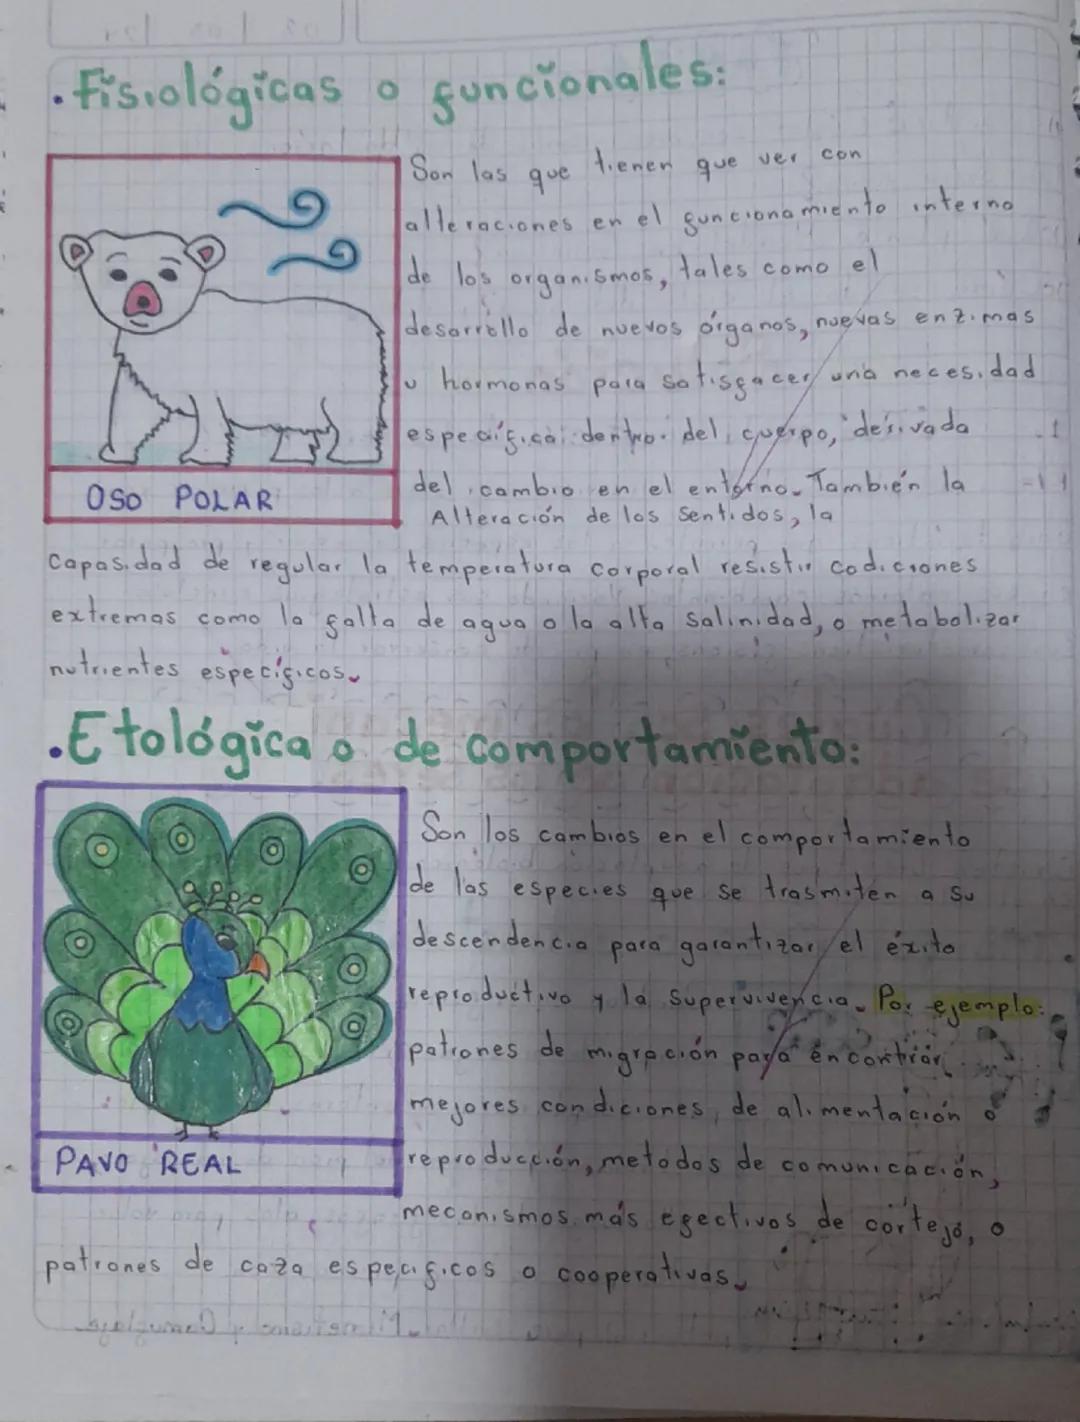 .Fisiológicas o funcionales:
Son las que tienen que ver con
alteraciones en el funcionamiento interno
de los organismos, tales como el
desarrollo de nuevos órganos, nuevas enzimas
u hormonas para satisfacer una necesidad
específica dentro del cuerpo, derivada
del cambio en el entorno. También la
Alteración de los sentidos, la
OSO POLAR
capasidad de regular la temperatura corporal resistir codiciones
extremas como la falta de agua o la alta salinidad, o metabolizar
nutrientes específicos.
.Etológica o de comportamiento:
Son los cambios en el comportamiento
de las especies que se trasmiten a su
descendencia para garantizar el éxito
reproductivo y la supervivencia. Por ejemplo:
patrones de migración para encontrar
mejores condiciones de alimentación o
reproducción, metodos de comunicación,
mecanismos más efectivos de cortejo, o
PAVO REAL
patrones de caza específicos o cooperativas.